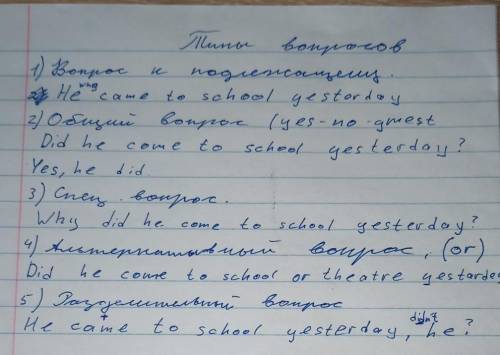 Типы вопросов
1) Вопрос к подлежащему.
He who came to school yesterday
2) Общий вопрос (yes-no quest
Did he come to school yesterday?
Yes, he did.
3) Спец. вопрос.
Why did he come to school yesterday?
4) Альтернативный вопрос, (or)
Did he come to school or theatre yesterday
5) Разделительный вопрос
He came to school yesterday, didn't he?